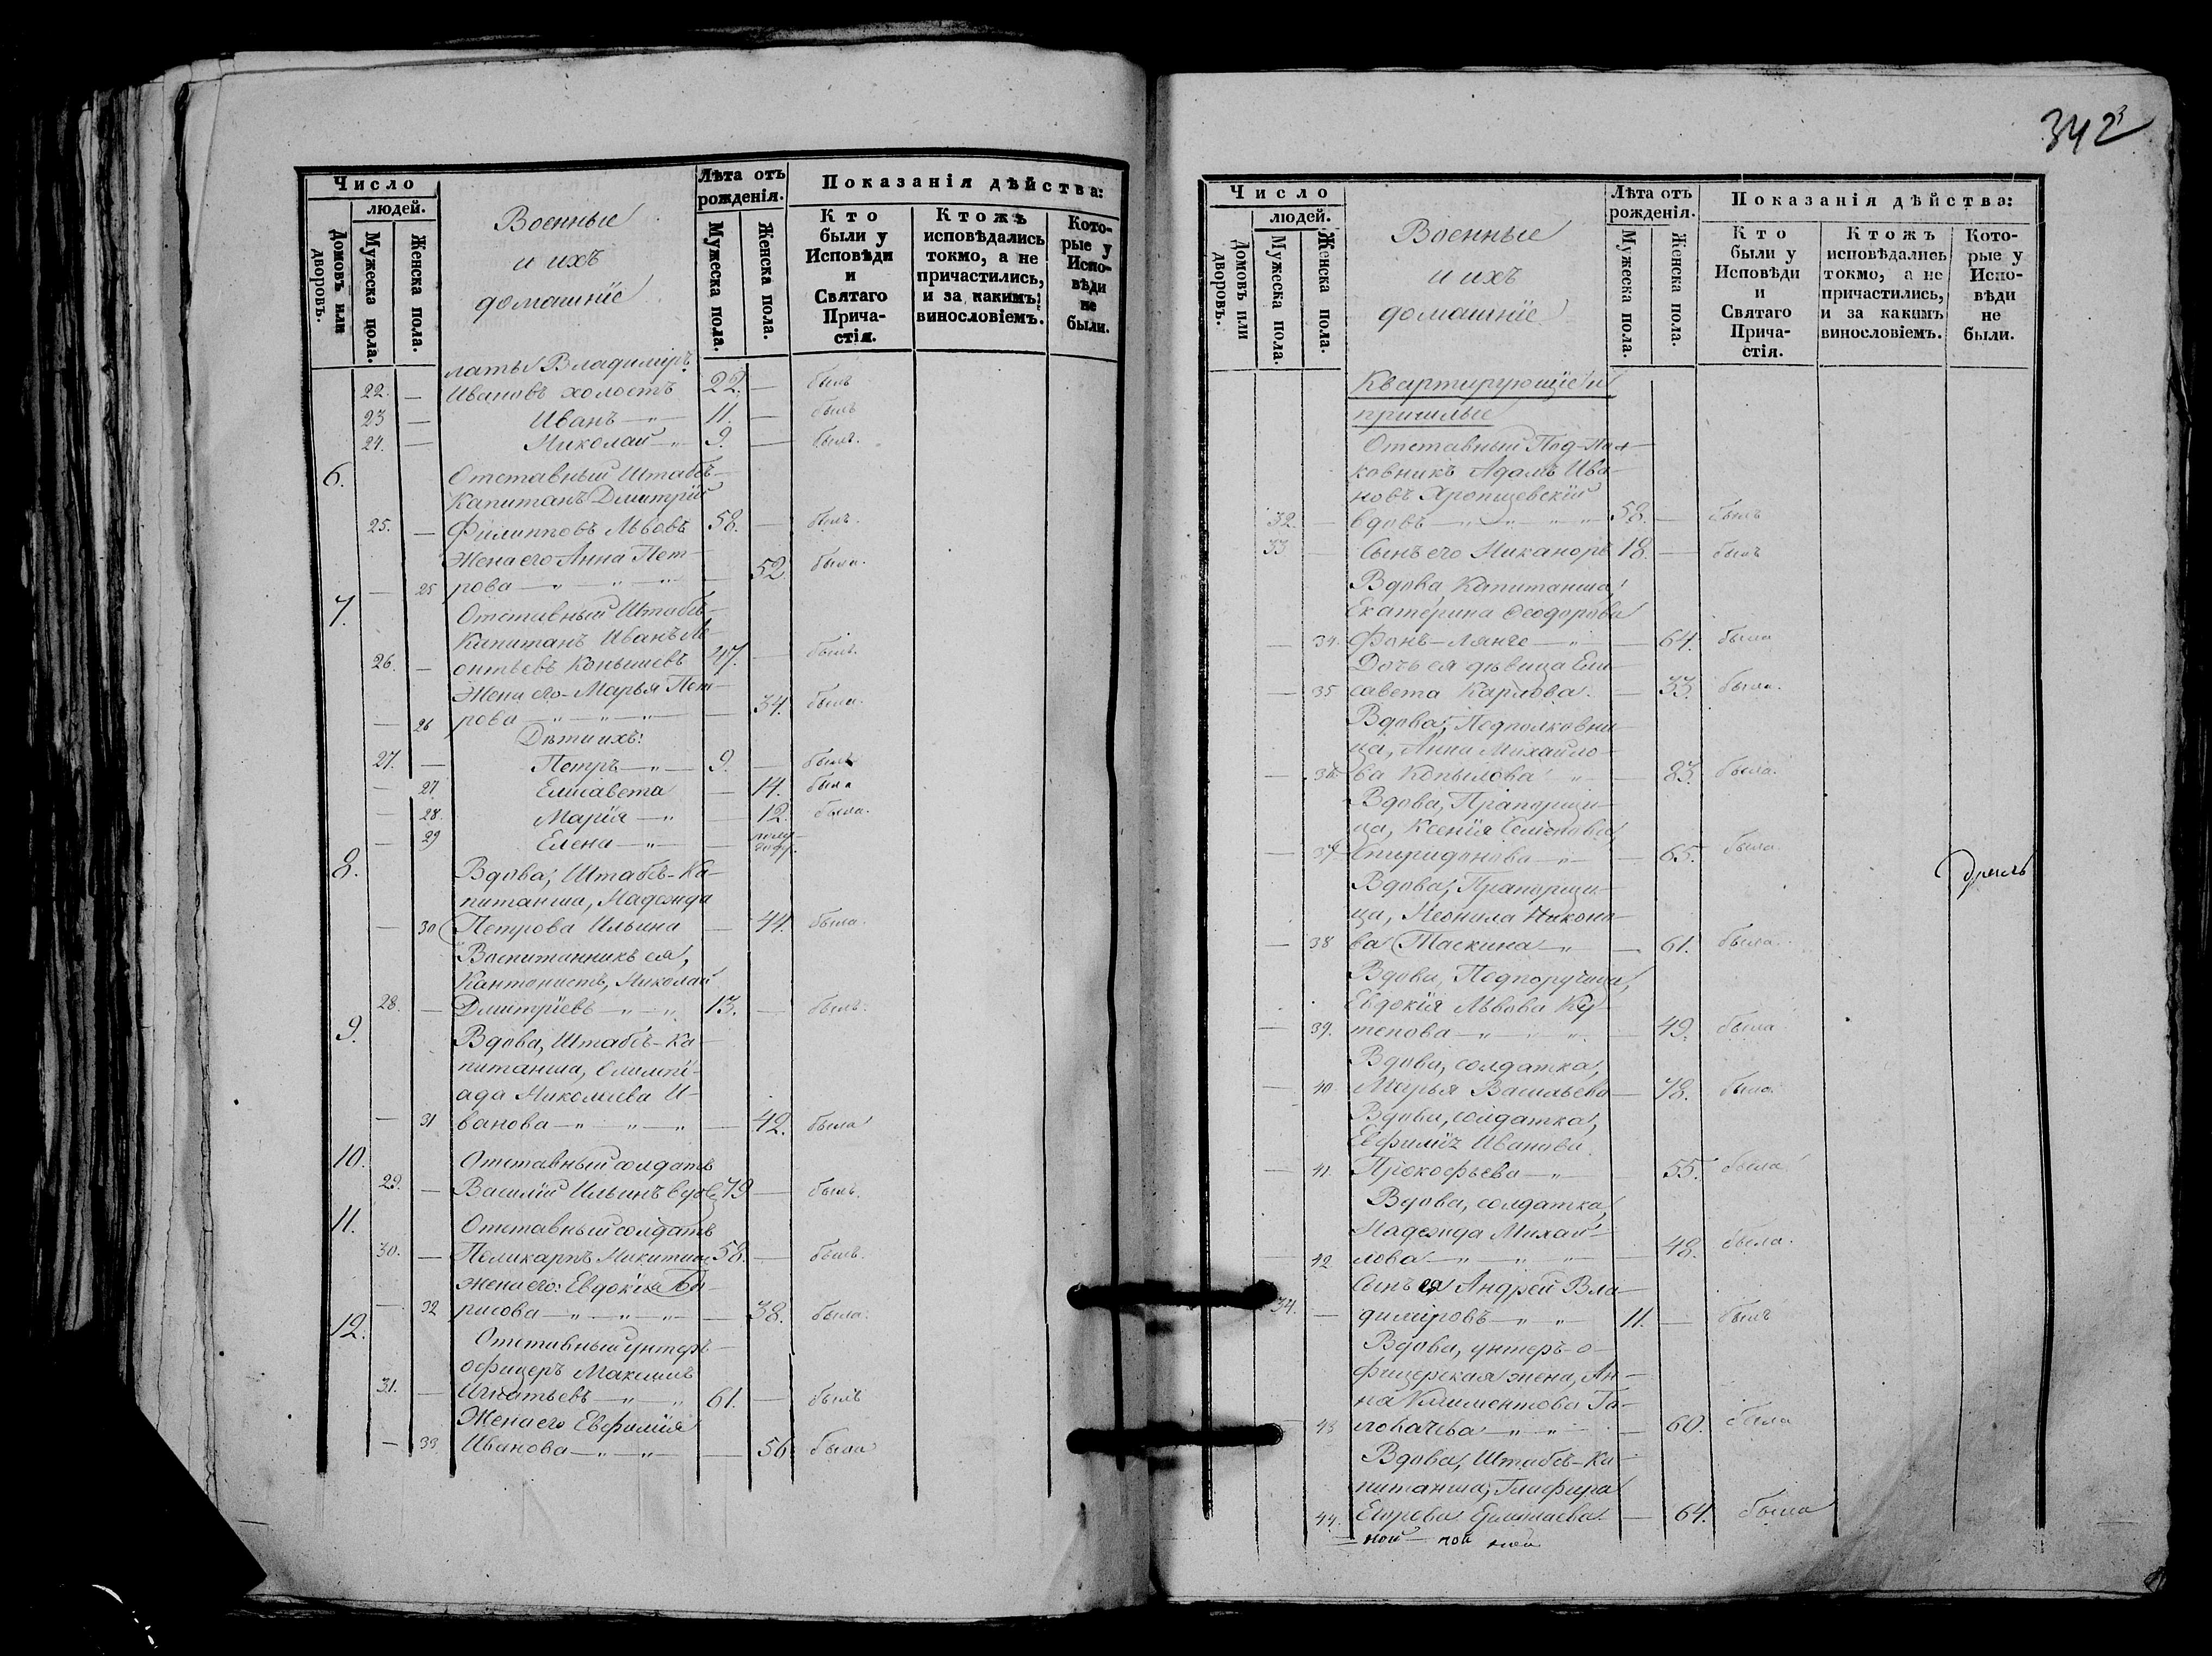 Число
людей.
Домовъ или дворовъ.
Мужеска пола.
Женска пола.
Военные
и ихъ
домашніе
Лѣта отъ
рожденія.
Мужеска пола.
Женска пола.
Показанія дѣйства:
Кто
были у
Исповѣди
и
Святаго
Прича-
стія.
Ктожъ
исповѣдались
токмо, а не
причастились,
и за какимъ
винословіемъ.
Кото-
рые у
Испо-
вѣди
не
были.
латы Владиміръ
22. — Ивановъ холостъ 22. — былъ
23 — Иванъ — 11. — былъ
24. — Николай — 9. — былъ.
6. Отставный Штабсъ-
Капитанъ Дмитрій
25. — Филипповъ Львовъ 58. — былъ.
Жена его Анна Пет-
— 25 рова — " — " — " — 52 была.
7. Отставный Штабсъ-
Капитанъ Иванъ Ле-
26. — онтьевъ Конышевъ 47. — былъ.
Жена его Марья Пет-
— 26 рова — " — " — 34. была.
Дѣти ихъ:
27. — Петръ — " — 9. — былъ
— 27 Елисавета — 14. была
— 28. Марія — " — 12. была.
— 29 Елена — " —
8. Вдова, Штабсъ-Ка-
питанша, Надежда
— 30 Петрова Ильина — 44. была
Воспитанникъ ея,
Кантонистъ, Николай
28. — Дмитріевъ — " — " 13. — былъ.
9. Вдова, Штабсъ-Ка-
питанша, Олимпі-
ада Николаева И-
— 31 ванова — " — " — " — 42. была
10. Отставный солдатъ
29. — Василій Ильинъ вдовъ 79 — былъ.
11. Отставный солдатъ
30. — Поликарпъ Никитинъ 58. — былъ.
жена его: Евдокія Бо-
— 32 рисова — " — " — " — 38. была.
12. Отставный унтеръ-
офицеръ Максимъ
31. — Игнатьевъ — " — " 61. — былъ
Жена его Евфимія
— 33 Иванова — " — " — 56. была
342
Число
людей.
Домовъ или дворовъ.
Мужеска пола.
Женска пола.
Военные
и ихъ
домашніе
Лѣта отъ
рожденія.
Мужеска пола.
Женска пола.
Показанія дѣйства:
Кто
были у
Исповѣди
и
Святаго
Прича-
стія.
Ктожъ
исповѣдались
токмо, а не
причастились,
и за какимъ
винословіемъ.
Кото-
рые у
Испо-
вѣди
не
были.
Квартирующіе и
пришлые
Отставный Под-пол-
ковникъ Адамъ Ива-
новъ Хропицевскій
32. — вдовъ — " — " — " — " 58. — былъ
33 — Сынъ его Никаноръ 18. — былъ
Вдова, Капитанша,
Екатерина Ѳеодорова
— 34. Фонъ-Лянге — " — 64. была
Дочь ея дѣвица Ели-
— 35 савета Карлова. — 33. была.
Вдова, Подполковни-
ца, Анна Михайло-
— 36. ва Копылова " — 83. была.
Вдова, Прапорщи-
ца, Ксенія Семенова
— 37 Спиридонова — " — 65. была
Вдова, Прапорщи-
ца, Неонила Никоно-
— 38 ва Таскина — " — 61. была.
Вдова, Подпоручица,
Евдокія Львова Ку-
— 39. тепова — " — " — " — 49. была
Вдова, солдатка,
— 40 Марья Васильева — 78. была.
Вдова, солдатка,
Евфимія Иванова
— 41. Прокофьева — " — 55. была
Вдова, солдатка,
Надежда Михай-
42 лова — " — " — " — 48. была.
Сынъ ея Андрей Вла-
34. — диміровъ — " — " — 11. — былъ
Вдова, унтеръ-о-
фицерская жена, Ан-
на Климонтова Го-
— 43 ловачева " — " — 60. была
Вдова, Штабсъ-Ка-
питанша, Глафира
44. Егорова Ермолаева — 64. была